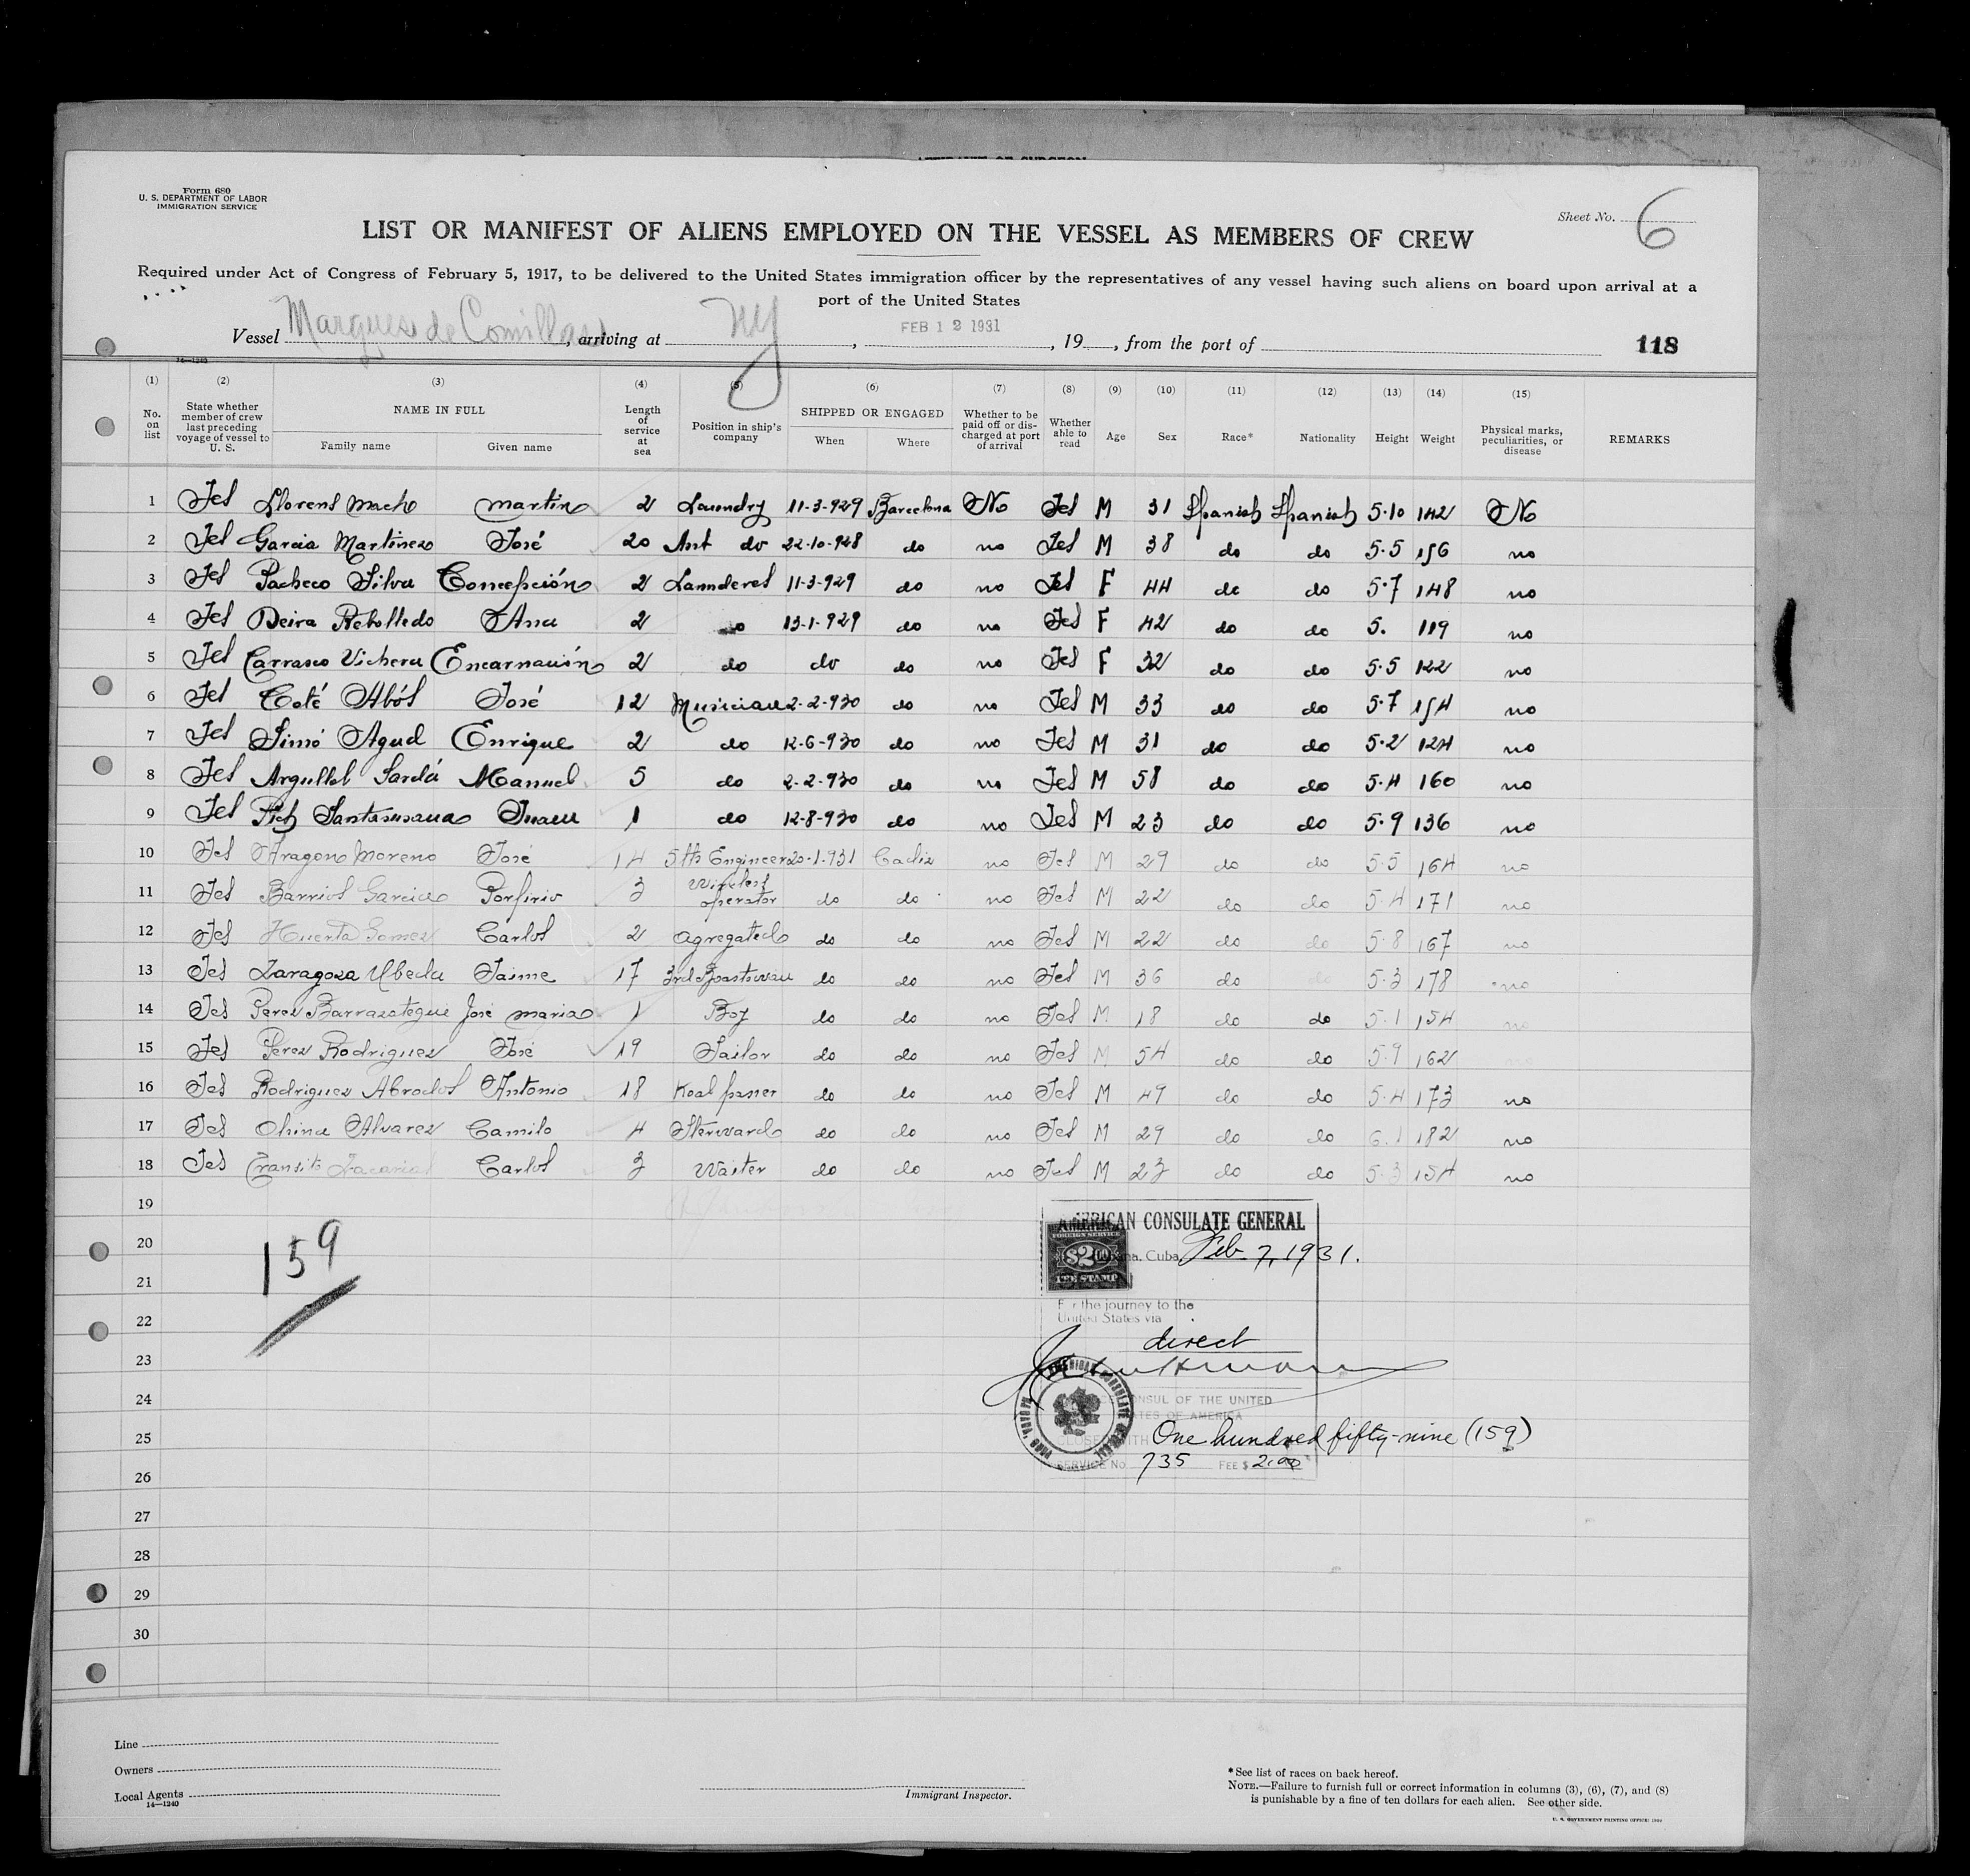 Form 680
U. S. DEPARTMENT OF LABOR
IMMIGRATION SERVICE
Sheet No. 6
LIST OR MANIFEST OF ALIENS EMPLOYED ON THE VESSEL AS MEMBERS OF CREW
Required under Act of Congress of February 5, 1917, to be delivered to the United States immigration officer by the representatives of any vessel having such aliens on board upon arrival at a
port of the United States
Vessel Marques de Comillas, arriving at NY, FEB 12 1931, 19__, from the port of 118
14—1240
(1) (2) (3) (4) (5) (6) (7) (8) (9) (10) (11) (12) (13) (14) (15)
No. on list State whether member of crew last preceding voyage of vessel to U. S. NAME IN FULL Family name Given name Length of service at sea Position in ship's company SHIPPED OR ENGAGED When Where Whether to be paid off or discharged at port of arrival Whether able to read Age Sex Race* Nationality Height Weight Physical marks, peculiarities, or disease REMARKS
1 Yes Llorens Macho Martin 2 Laundry 11-3-929 Barcelona No Yes M 31 Spanish Spanish 5.10 142 No
2 Yes Garcia Martinez José 20 Ast do 22-10-928 do no Yes M 38 do do 5.5 156 no
3 Yes Pacheco Silva Concepción 2 Launderes 11-3-929 do no Yes F 44 do do 5.7 148 no
4 Yes Neira Rebolledo Ana 2 do 13-1-929 do no Yes F 42 do do 5. 119 no
5 Yes Carrasco Vichera Encarnación 2 do do do no Yes F 32 do do 5.5 122 no
6 Yes Coté Abós José 12 Musician 2-2-930 do no Yes M 33 do do 5.7 154 no
7 Yes Simó Agud Enrique 2 do 12-6-930 do no Yes M 31 do do 5.2 124 no
8 Yes Argullol Sardá Manuel 5 do 2-2-930 do no Yes M 58 do do 5.4 160 no
9 Yes Pich Santasusana Juan 1 do 12-8-930 do no Yes M 23 do do 5.9 136 no
10 Yes Aragon Moreno José 14 5th Engineer 20-1-931 Cadiz no Yes M 29 do do 5.5 164 no
11 Yes Barrios Garcia Porfirio 3 Wireless operator do do no Yes M 22 do do 5.4 171 no
12 Yes Huerta Gomez Carlos 2 Agregated do do no Yes M 22 do do 5.8 167 no
13 Yes Zaragoza Ubeda Jaime 17 3rd Boastswau do do no Yes M 36 do do 5.3 178 no
14 Yes Perez Barrazategui José maria 1 Boy do do no Yes M 18 do do 5.1 154 no
15 Yes Perez Rodriguez José 19 Sailor do do no Yes M 54 do do 5.9 162 no
16 Yes Rodriguez Abrodos Antonio 18 Koal passer do do no Yes M 49 do do 5.4 173 no
17 Yes China Alvarez Camilo 4 Steward do do no Yes M 29 do do 6.1 182 no
18 Yes Transito Zacarias Carlos 3 Waiter do do no Yes M 23 do do 5.3 154 no
19
20
21
22
23
24
25
26
27
28
29
30
159
AMERICAN CONSULATE GENERAL
FOREIGN SERVICE $2.00 FEE STAMP
Habana, Cuba, Feb. 7, 1931.
For the journey to the
United States via
direct
CONSUL OF THE UNITED
STATES OF AMERICA
CLOSED WITH One hundred fifty-nine (159)
SERVICE No. 735 FEE $ 2.00
AMERICAN CONSULATE GENERAL HABANA, CUBA
Line
Owners
Local Agents
14—1240
Immigrant Inspector.
* See list of races on back hereof.
NOTE.—Failure to furnish full or correct information in columns (3), (6), (7), and (8)
is punishable by a fine of ten dollars for each alien. See other side.
U. S. GOVERNMENT PRINTING OFFICE: